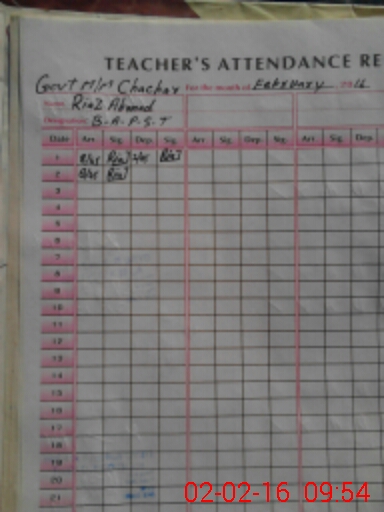 TEACHER'S ATTENDANCE RE
Govt M/M Chachar For the month of February 2016
Name: Riaz Ahmed
Designation: B-A-P-S-T
Date Arr. Sig. Dep. Sig. Arr. Sig. Dep. Sig. Arr. Sig. Dep.
1 Riaz Riaz
2 Riaz
3
4
5
6
7
8
9
10
11
12
13
14
15
16
17
18
19
20
21
02-02-16 09:54